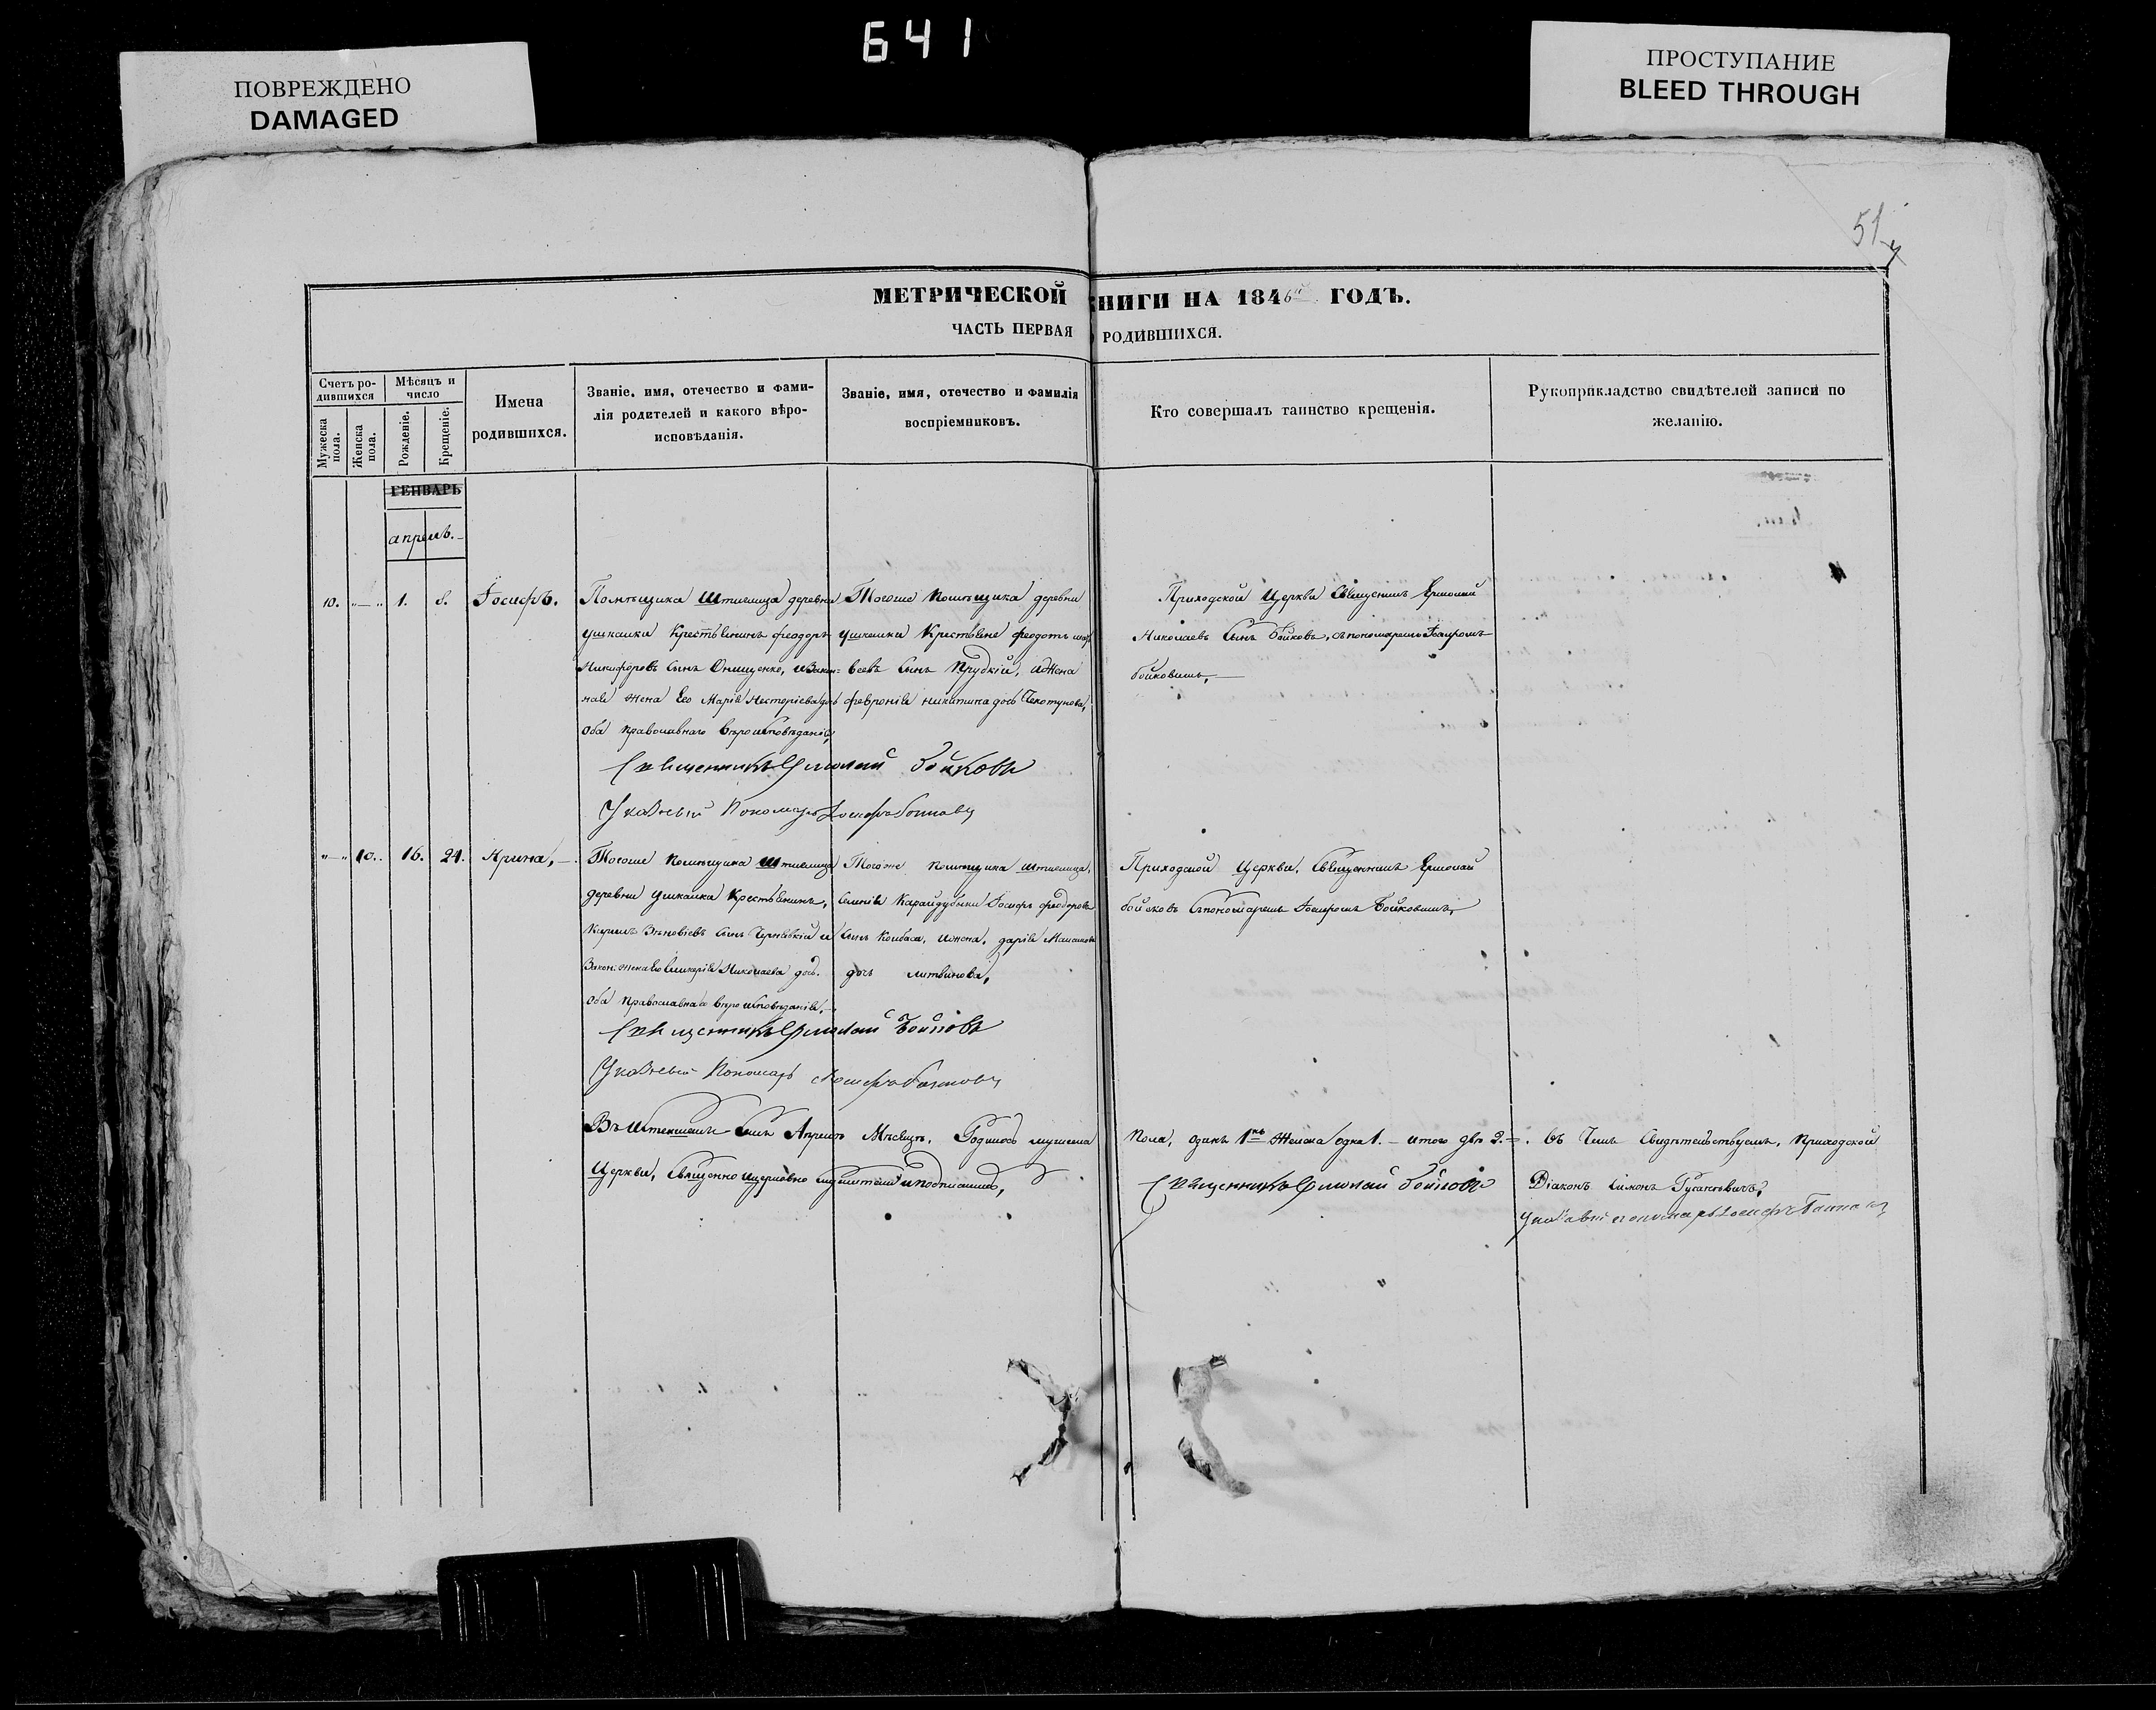 641
ПОВРЕЖДЕНО
DAMAGED
ПРОСТУПАНИЕ
BLEED THROUGH
51
МЕТРИЧЕСКОЙ КНИГИ НА 1846 ГОДЪ.
ЧАСТЬ ПЕРВАЯ О РОДИВШИХСЯ.
Счетъ ро-
дившихся
Мужеска
пола.
Женска
пола.
Мѣсяцъ и
число
Рожденіе.
Крещеніе.
Имена
родившихся.
Званіе, имя, отечество и фами-
лія родителей и какого вѣро-
исповѣданія.
Званіе, имя, отечество и фамилія
воспріемниковъ.
Кто совершалъ таинство крещенія.
Рукоприкладство свидѣтелей записи по
желанію.
ГЕНВАРЬ
апрель.
10. „—„ 1. 8. Іосифъ.
Помѣщика Штиглица деревни
ушкалки Крестьянинъ феодоръ
Никифоровъ Сынъ Онищенко, и Закон=
ная жена Его Марія Несторіева дочь
оба православнаго вѣроисповѣданія,
Тогоже помѣщика деревни
ушкалки Крестьяне феодотъ
сынъ Прудкій, и Жена
февронія никитина дочь Чекотунова,
Приходской Церкви Священникъ Ермолай
Николаевъ Сынъ Бойковъ, съ пономаремъ Іосифомъ
бойковымъ,
Священникъ Ермолай Бойковъ
Указный Пономарь Іосифъ Бойковъ
„—„ 10. 16. 24. Ирина,
Тогоже Помѣщика Штиглица
деревни ушкалки Крестьянинъ,
Кирилъ Зѣновіевъ Сынъ и
Закон: жена Его Гликерія Николаева дочь.
оба православнаго вѣроисповѣданія,
Тогоже помѣщика Штиглица,
Селенія Карайдубыни Іосифъ феодоровъ
Сынъ Колбаса, и жена, дарія Максимова
дочь литвинова,
Приходской Церкви, Священникъ Ермолай
бойковъ Съ пономаремъ Іосифомъ Бойковымъ,
Священникъ Ермолай Бойковъ
Указный Пономарь Іосифъ Бойковъ
Въ Истекшемъ Семъ Апрелѣ Мѣсяцѣ. Родилось мужеска Пола, одинъ 1нъ Женска одна 1. – итого двѣ 2. = . Въ Чемъ Свидѣтельствуемъ, Приходской
Церкви, Священно и церковно служители и подписались,
Священникъ Ермолай Бойковъ
Діаконъ Симонъ
Указный пономарь Іосифъ Бойковъ